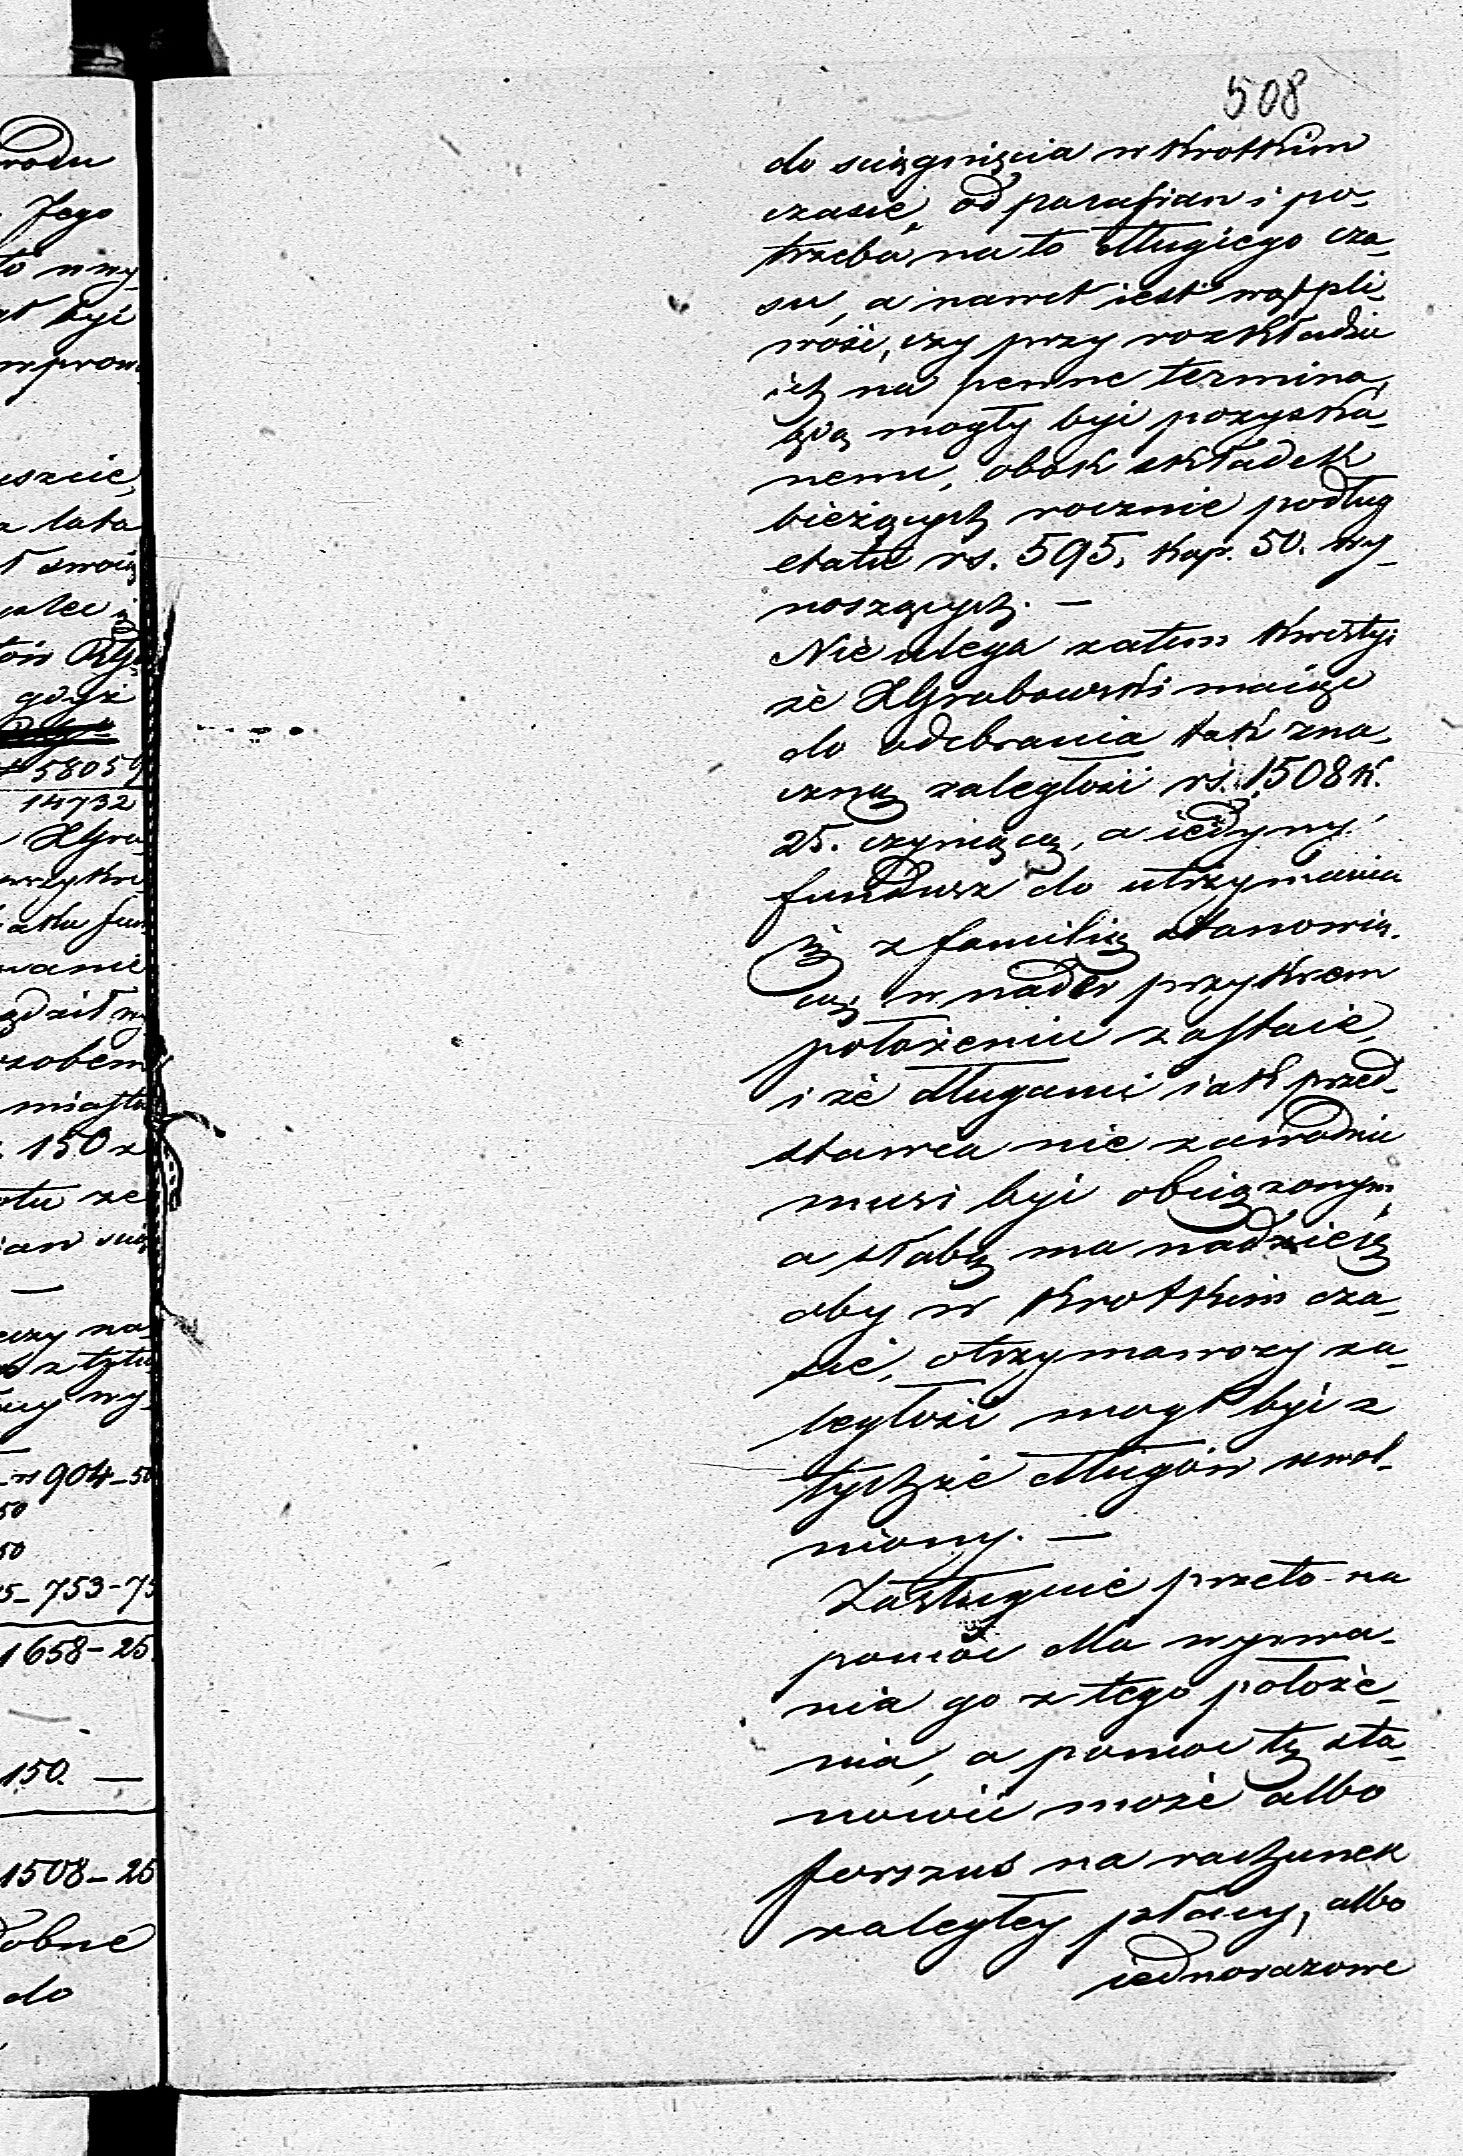 508
do sciągnięcia w krotkim
czasie, od parafian i po-
trzeba na to długiego cza-
su, a nawet iest wątpli-
wość, czy przy rozkładzie
ich na pewne termina,
będą mogły być pozyska-
nemi, obok składek
bieżących rocznie podług
etatu rs. 595. kop. 50. wy-
noszących. —
Nie ulega zatem kwestyi
że XGrabowski maiąc
do odebrania tak zna-
czną zaległość rs. 1508 k.
25. czyniącą, a iedyny
fundusz do utrzymania
się z familią stanowią-
cą, w nader przykrem
położeniu zostaie,
i że długami iak przed-
stawia nie zawodnie
musi być obciążonym,
a słabą ma nadzieię
aby w krotkim cza-
sie, otrzymawszy za-
ległość mogł być z
tychże długów uwol-
niony. —
Zasługuie przeto na
pomoc dla wyrwa-
nia go z tego położe-
nia, a pomoc tę sta-
nowić może albo
forszus na rachunek
zaległey płacy, albo
iednorazowe
rodu
Jego
to wwy-
być
uszcie,
lata
swoią
gdyż
58059
14732
XGra-
wanie
sobem
miasta
150 z
ze
czy na-
z tytu
wy-
rs 904-50
50
50
753-75
1658-25
150. —
1508-25
dobne
do